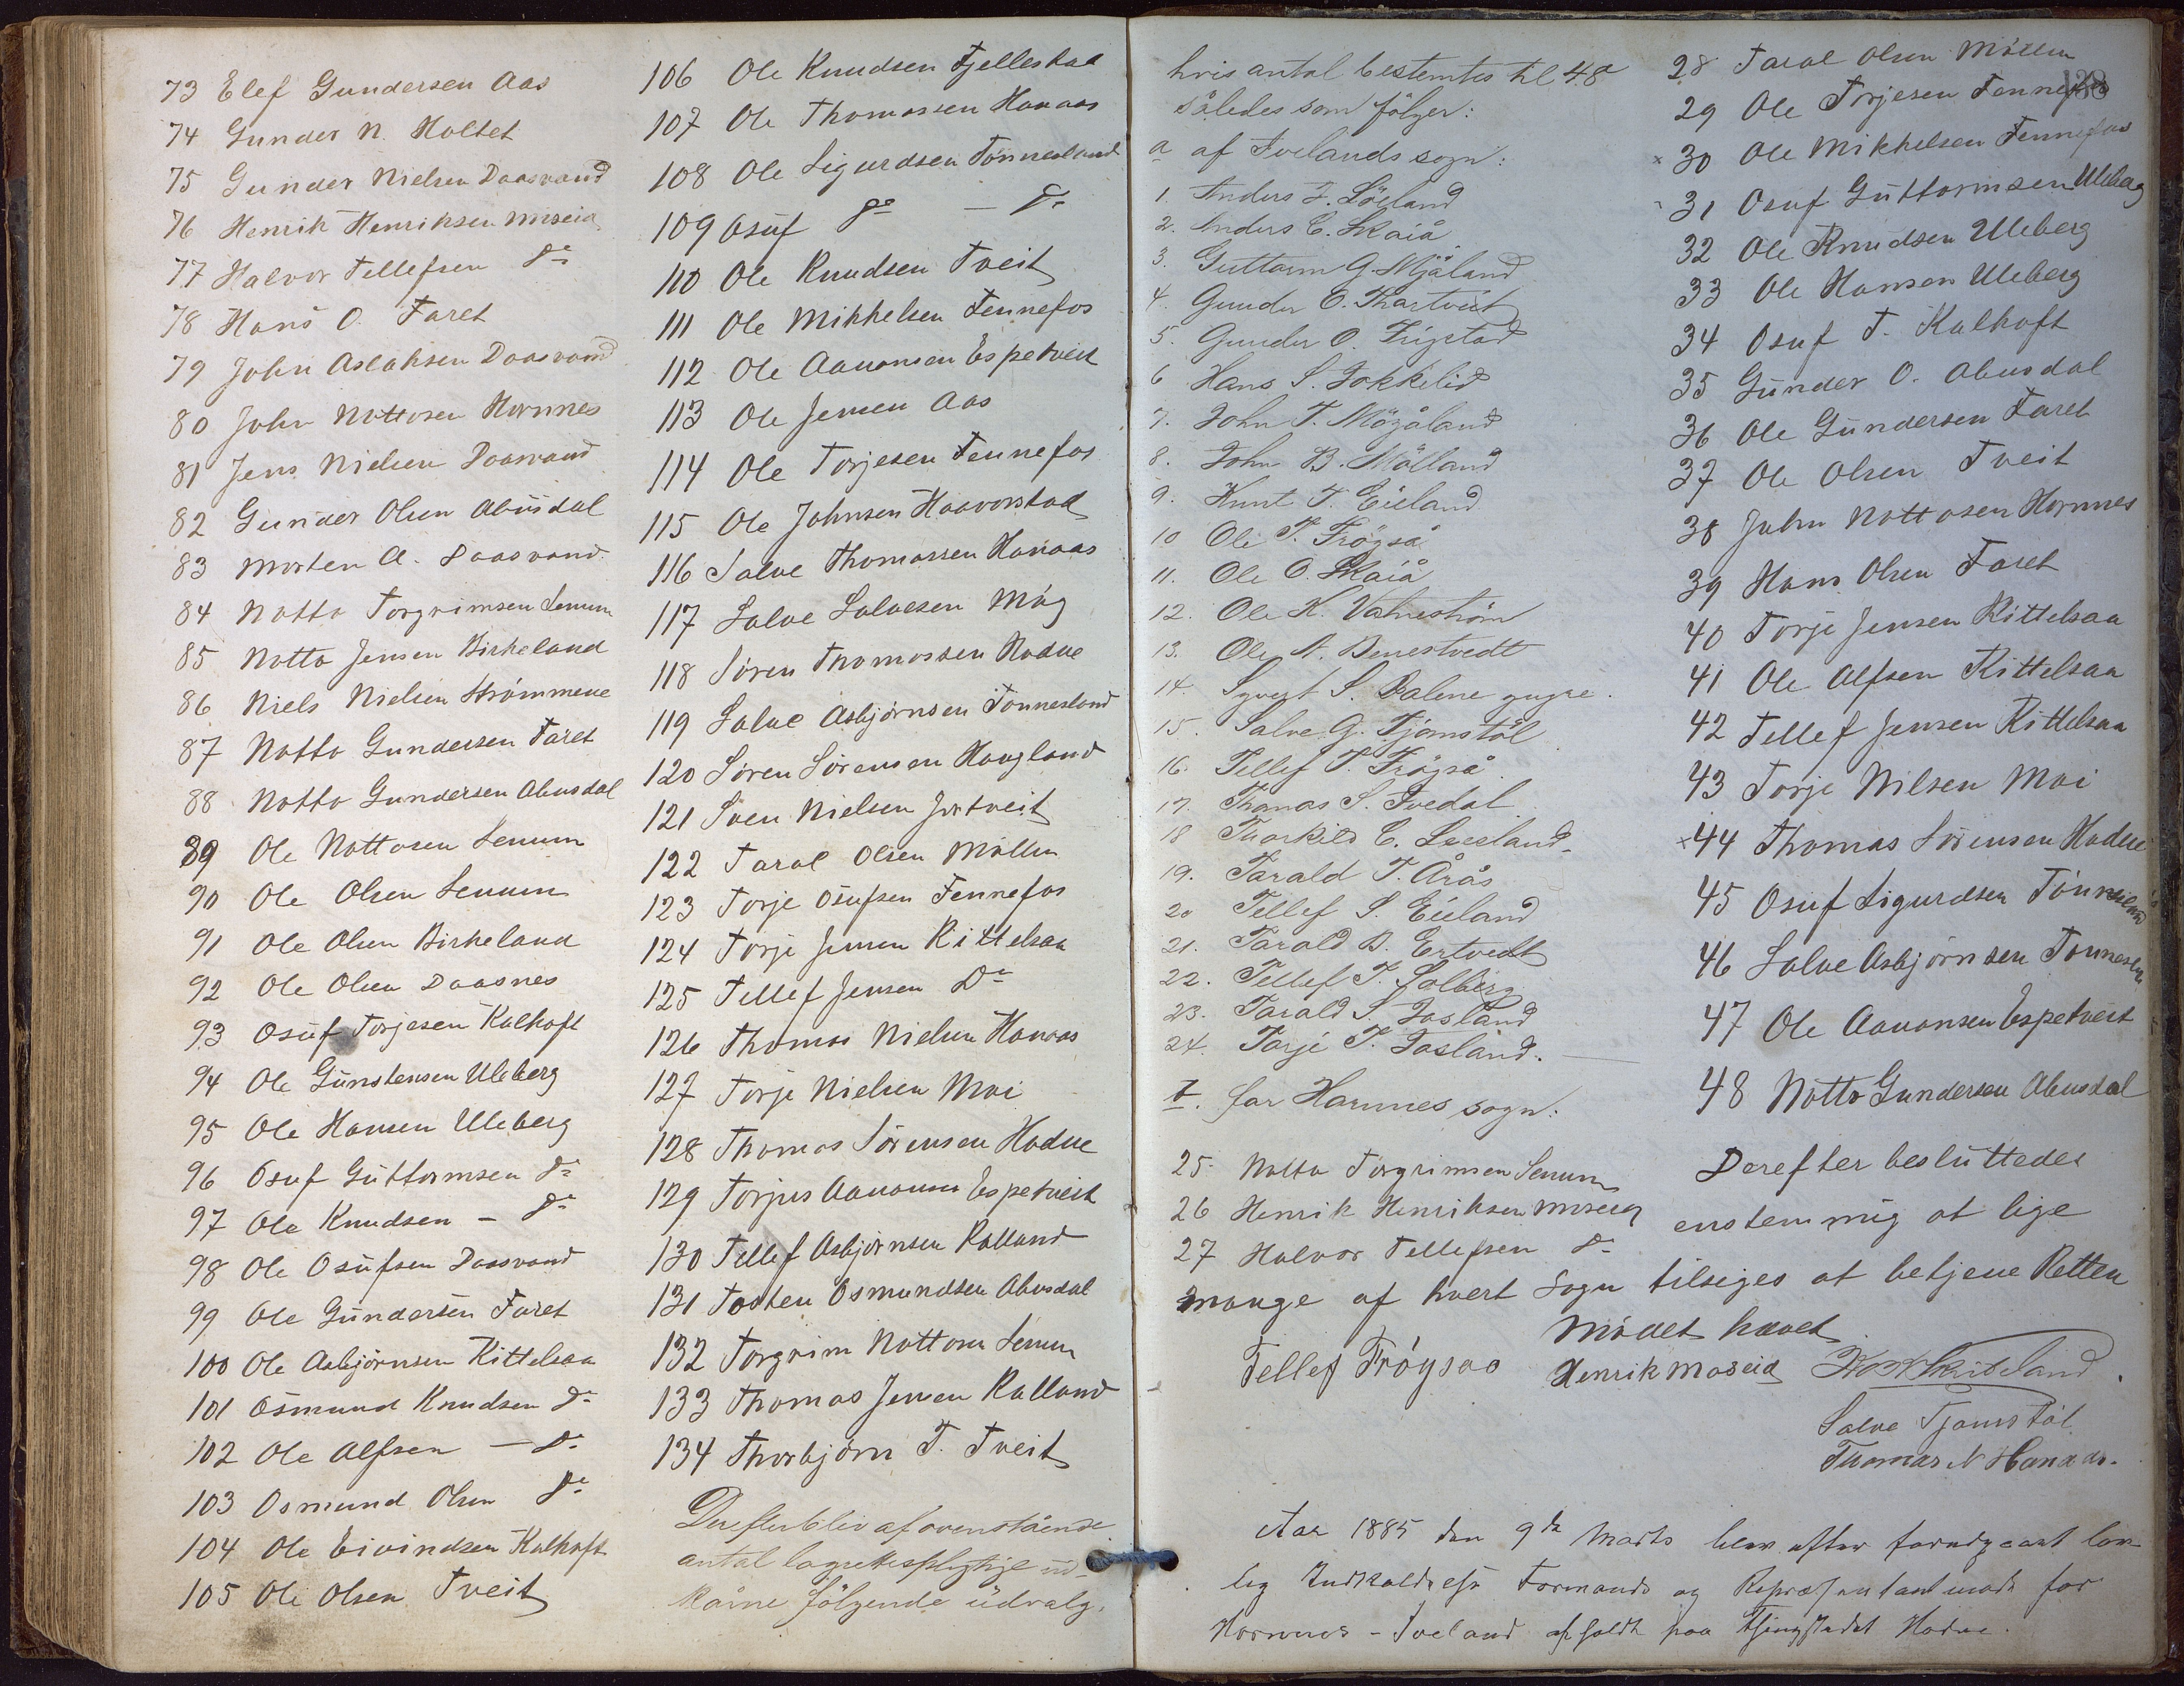 73 Elef Gundersen Aas
74 Gunder N. Holtet
75 Gunder Nielsen Daasvand
76 Henrik Henriksen Moseid
77 Halvor Tellefsen Do
78 Hans O. Faret
79 John Aslaksen Daasvand
80 John Nottosen Hornnes
81 Jens Nielsen Daasvand
82 Gunder Olsen Abusdal
83 Morten A. Daasvand
84 Notto Torgrimsen Senum
85 Notto Jensen Birkeland
86 Niels Nielsen Strömmene
87 Notto Gundersen Faret
88 Notto Gundersen Abusdal
89 Ole Nottosen Senum
90 Ole Olsen Senum
91 Ole Olsen Birkeland
92 Ole Olsen Daasnes
93 Osuf Torjesen Kalhoft
94 Ole Gunstensen Uleberg
95 Ole Hansen Uleberg
96 Osuf Guttormsen Do
97 Ole Knudsen - Do
98 Ole Osufsen Daasvand
99 Ole Gundersen Faret
100 Ole Asbjörnsen Kittelsaa
101 Osmund Knudsen Do
102 Ole Alfsen - Do
103 Osmund Olsen Do
104 Ole Eivindsen Kalhoft
105 Ole Olsen Tveit
106 Ole Knudsen Fjelleskaa
107 Ole Thomassen Hanaas
108 Ole Sigurdsen Tönnesland
109 Osuf Do - Do
110 Ole Knudsen Tveit
111 Ole Mikkelsen Fennefos
112 Ole Aanonsen Espetveit
113 Ole Jensen Aas
114 Ole Torjesen Fennefos
115 Ole Johnsen Haavorstad
116 Salve Thomassen Hanaas
117 Salve Salvesen Møg
118 Sören Thomassen Hodne
119 Salve Asbjörnsen Tönnesland
120 Sören Sörensen Haugland
121 Sven Nielsen Jortveit
122 Taral Olsen Möllen
123 Torje Osufsen Fennefos
124 Torje Jensen Kittelsaa
125 Tellef Jensen Do
126 Thomas Nielsen Hanaas
127 Torje Nielsen Moi
128 Thomas Sörensen Hodne
129 Torjus Aanonsen Espetveit
130 Tellef Asbjörnsen Kalland
131 Tosten Osmundsen Abusdal
132 Torgrim Nottosen Senum
133 Thomas Jensen Kalland
134 Thorbjörn T. Tveit
Derefter blev af ovenstående
antal lagrettespligtige ud-
kårne følgende udvalg,
138
hvis antal bestemtes til 48
således som følger:
a af Ivelands sogn:
1. Anders J. Löland
2. Anders C. Skaiå
3. Guttorm G. Mjåland
4. Gunder E. Thartveit
5. Gunder O. Frigstad
6 Hans S. Jokkelid
7. John T. Mögåland
8. John B. Mölland
9. Knut T. Eieland
10 Ole T. Frögså
11. Ole O. Skaiå
12. Ole K. Vatneström
13. Ole N. Benestvedt
14. Syvert S. Dalene yngre.
15. Salve G. Tjömstöl
16. Tellef T. Frögså.
17. Thomas S. Ivedal
18 Thorkild C. Lieland
19. Tarald T. Årås
20 Tellef S. Eieland
21. Tarald B. Ertvedt
22. Tellef T. Solberg
23. Tarald S. Josland
24. Tarje T. Josland.
b. for Hornnes sogn:
25. Notto Torgrimsen Senum
26 Henrik Henriksen Moseid
27 Halvor Tellefsen Do
28 Taral Olsen Möllen
29 Ole Torjesen Fennefos
x 30 Ole Mikkelsen Fennefos
31 Osuf Guttormsen Uleberg
32 Ole Knudsen Uleberg
33 Ole Hansen Uleberg
34 Osuf T. Kalhoft
35 Gunder O. Abusdal
36 Ole Gundersen Faret
37 Ole Olsen Tveit
38 John Nottosen Hornnes
39 Hans Olsen Faret
40 Torje Jensen Kittelsaa
41 Ole Alfsen Kittelsaa
42 Tellef Jensen Kittelsaa
43 Torje Nilsen Moi
x 44 Thomas Sörensen Hodne
45 Osuf Sigurdsen Tönnesland
46 Salve Asbjörnsen Tönnesland
47 Ole Aanonsen Espetveit
48 Notto Gundersen Abusdal
Derefter besluttedes
enstemmig at lige
mange af hvert Sogn tilsiges at betjene Retten
Mödet hævet.
Tellef Fröysaa Henrik Moseid
Salve Tjomstöl
Thomas N Hanaas.
Aar 1885 den 9de Marts blev efter forudgaaet lov-
lig Indkaldelse Formands og Repræsentantmøde for
Hornnes - Iveland afholdt paa Thingstedet Hodne.